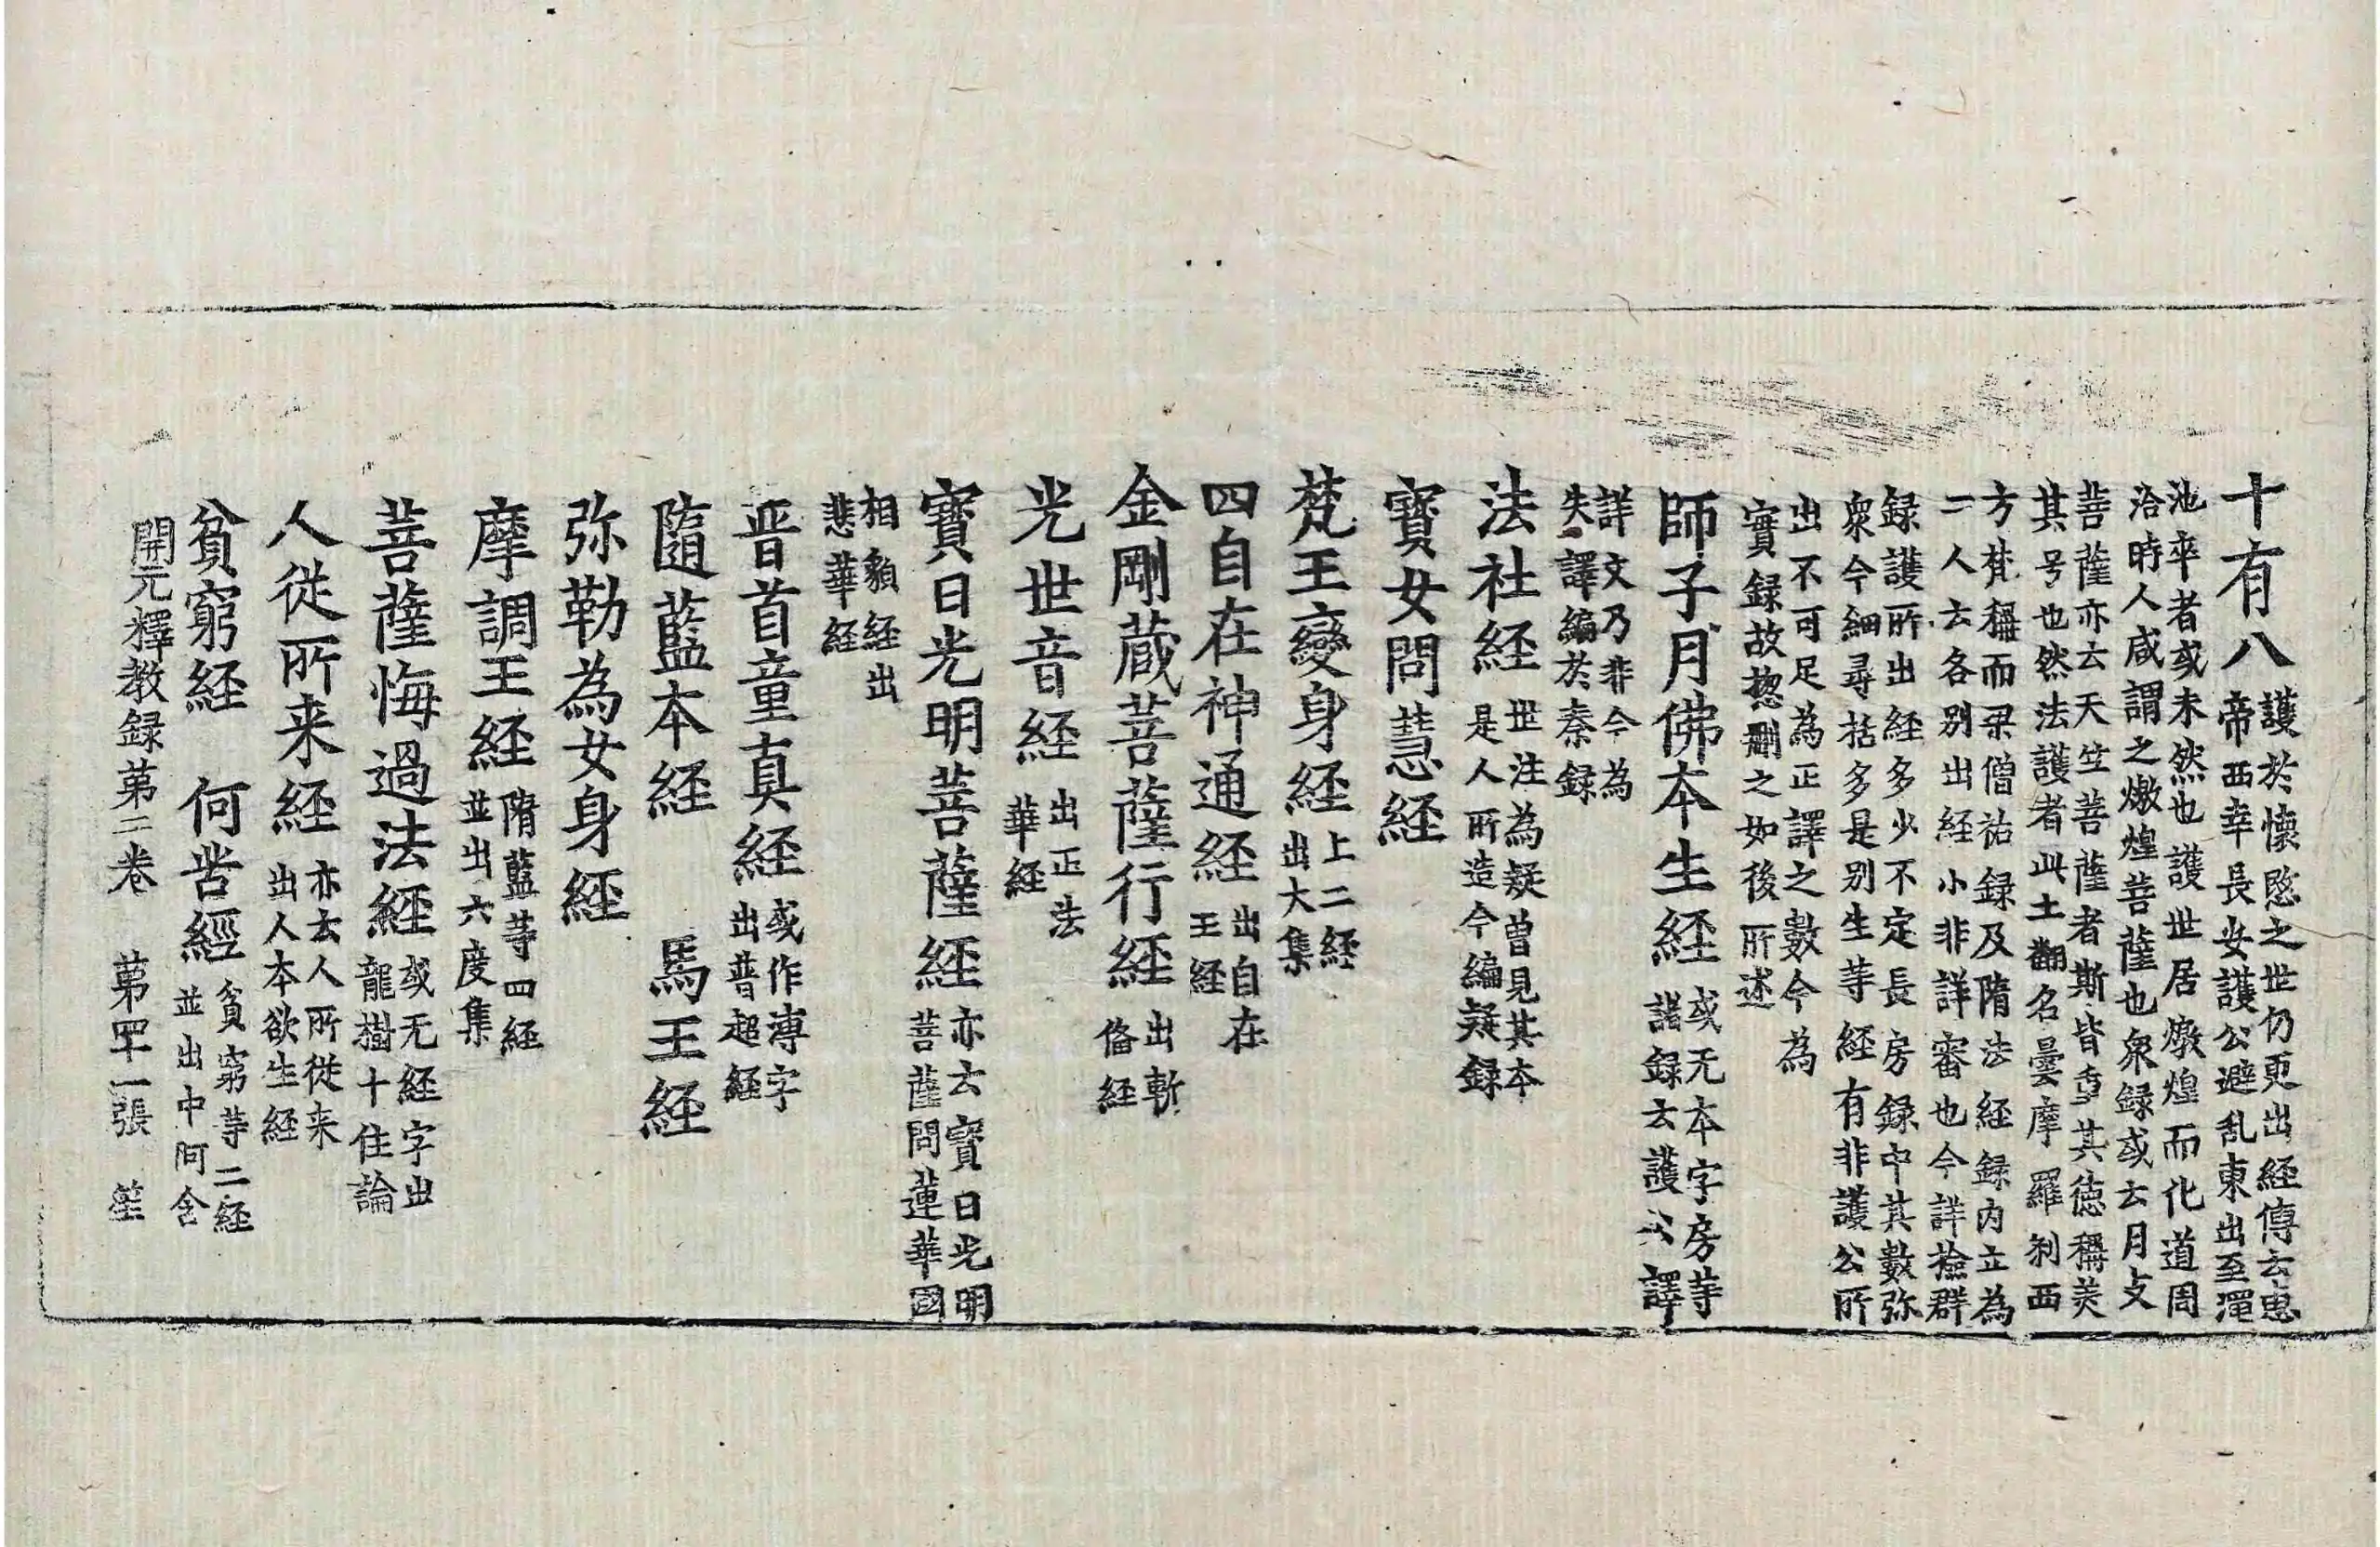 十有八護於懷愍之世仍更出経傳云惠
帝西幸長安護公避乱東出至澠
池卒者或未然也護世居燉煌而化道周
洽時人咸謂之燉煌菩薩也衆録或云月支
菩薩亦云天竺菩薩者斯皆重其德稱美
其号也然法護者此土翻名曇摩羅刹西
方梵稱而梁僧祐録及隋法経録内立為
二人云各別出経小非詳審也今詳撿群
録護所出経多少不定長房録中其數弥
衆今細尋括多是別生䓁経有非護公所
出不可足為正譯之數今為
實録故揔刪之如後所述
師子月佛本生経或无本字房䓁
諸録云護公譯
詳文乃非今為
失譯編於秦録
法社経世注為疑曽見其本
是人所造今編疑録
寳女問慧経
梵王變身経上二経
出大集
四自在神通経出自在
王経
金剛蔵菩薩行経出漸
俻経
光世音経出正法
華経
寳日光明菩薩経亦云寳日光明
菩薩問蓮華國
相貌経出
悲華経
晋首童真経或作溥字
出普超経
隨藍本経 馬王経
弥勒為女身経
摩調王経隋藍䓁四経
並出六度集
菩薩悔過法経或无経字出
龍樹十住論
人從所来経亦云人所從来
出人本欲生経
貧窮経 何苦經貧窮䓁二経
並出中阿含
開元釋教録第二卷 第四十一張 笙